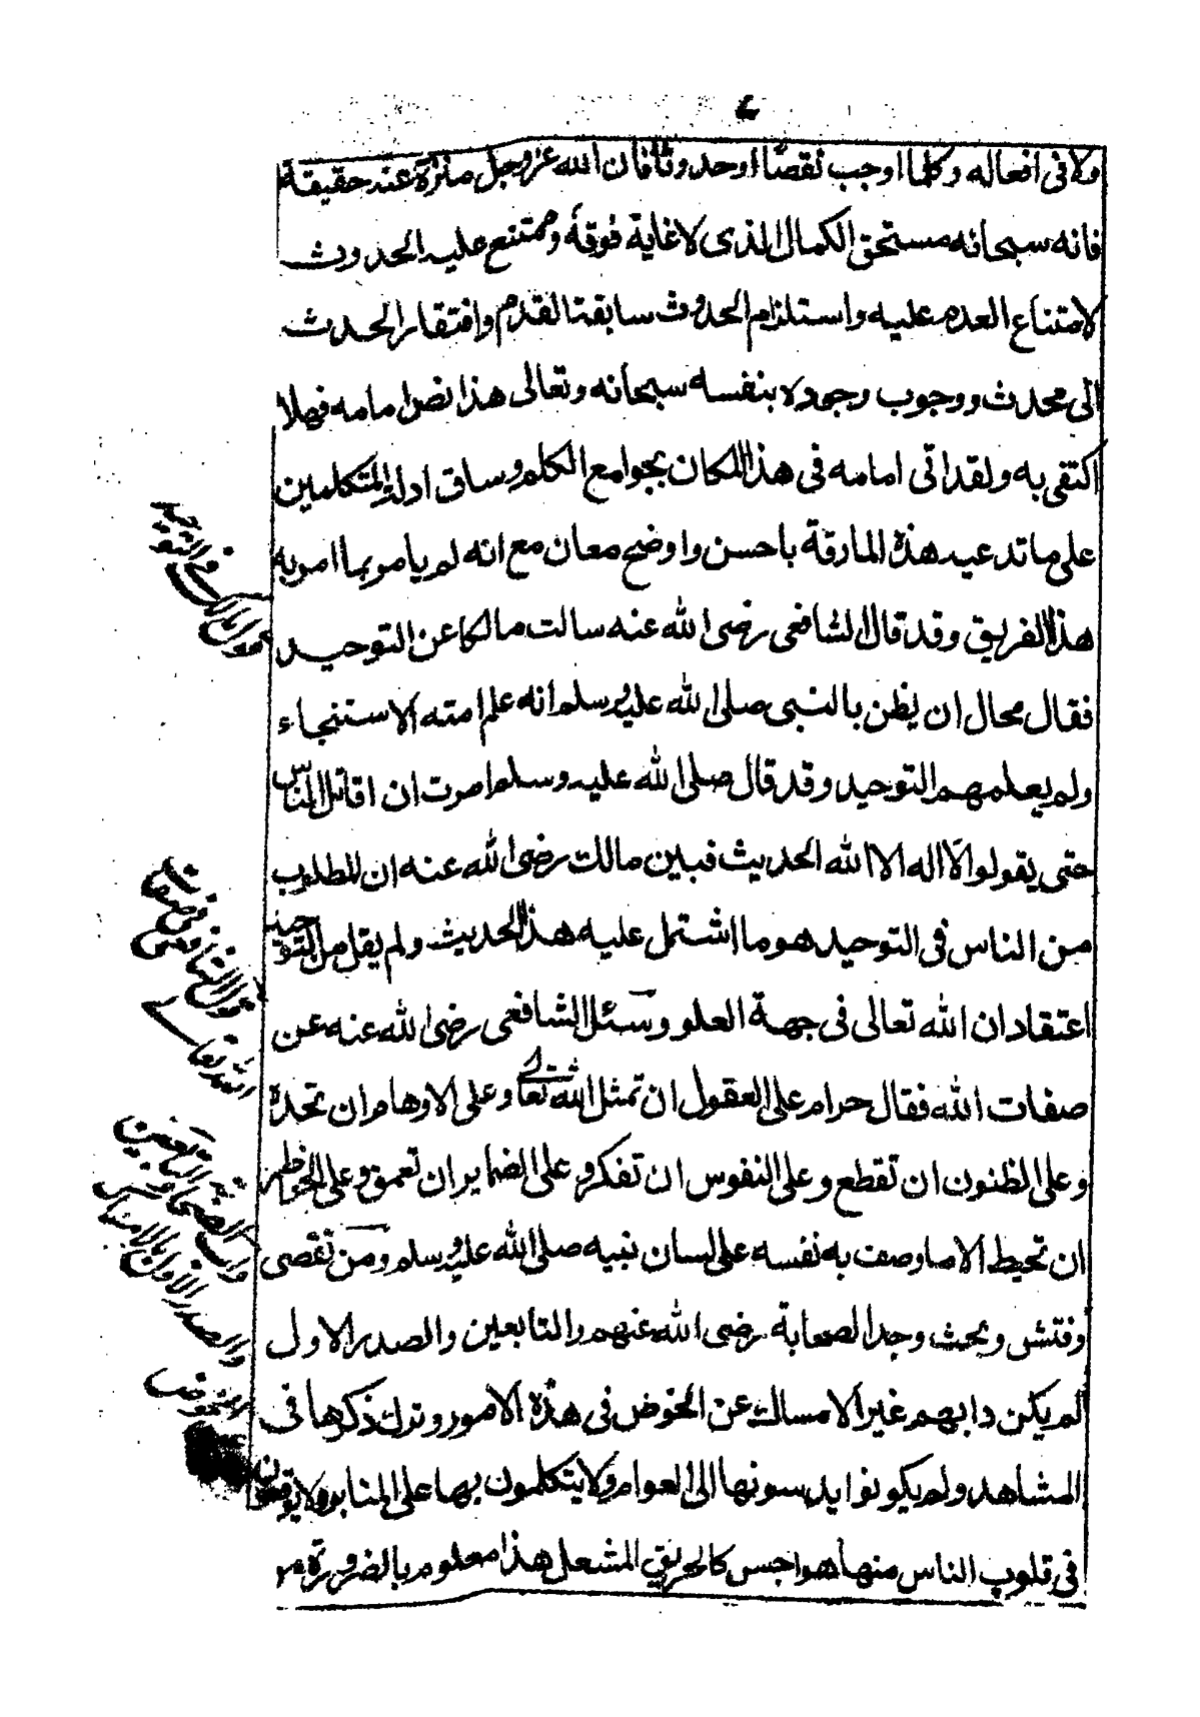 ولا في افعاله وكلما اوجب نقصًا او حدوثا فان الله عز وجل منزه عنه حقيقة
فانه سبحانه مستحق الكمال الذي لا غاية فوقه وممتنع عليه الحدوث
لامتناع العدم عليه واستلزام الحدوث سابقة القدم وافتقار المحدث
الى محدث ووجوب وجوده بنفسه سبحانه وتعالى هذا نص امامه فهلا
اكتفى به ولقد اتى امامه في هذا المكان بجوامع الكلم وساق ادلة المتكلمين
على ما تدعيه هذه المارقة باحسن واوضح معان مع انه لم يامر بما امر به
هذا الفريق وقد قال الشافعي رضى الله عنه سالت مالكا عن التوحيد
فقال محال ان يظن بالنبي صلى الله عليه وسلم انه علم امته الاستنجاء
ولم يعلمهم التوحيد وقد قال صلى الله عليه وسلم امرت ان اقاتل الناس
حتى يقولوا لا اله الا الله الحديث فبين مالك رضى الله عنه ان المطلوب
من الناس في التوحيد هو ما اشتمل عليه هذا الحديث ولم يقل من التوحيد
اعتقاد ان الله تعالى في جهة العلو وسئل الشافعي رضى الله عنه عن
صفات الله فقال حرام على العقول ان تمثل الله تعالى وعلى الاوهام ان تحده
وعلى الظنون ان تقطع وعلى النفوس ان تفكر وعلى الضماير ان تعمق وعلى الخواطر
ان تحيط الا ما وصف به نفسه على لسان نبيه صلى الله عليه وسلم ومن تقصى
وفتش وبحث وجد الصحابة رضى الله عنهم والتابعين والصدر الاول
لم يكن دابهم غير الامساك عن الخوض في هذه الامور وترك ذكرها في
المشاهد ولم يكونوا يدسونها الى العوام ولا يتكلمون بها على المنابر ولا يوقعون
في قلوب الناس منها هواجس كالحريق المشعل هذا معلوم بالضرورة من
قول مالك في التوحيد
قول الشافعي في صفات
الله تعالى
داب الصحابة والتابعين
والصدر الاول الامساك
عن الخوض